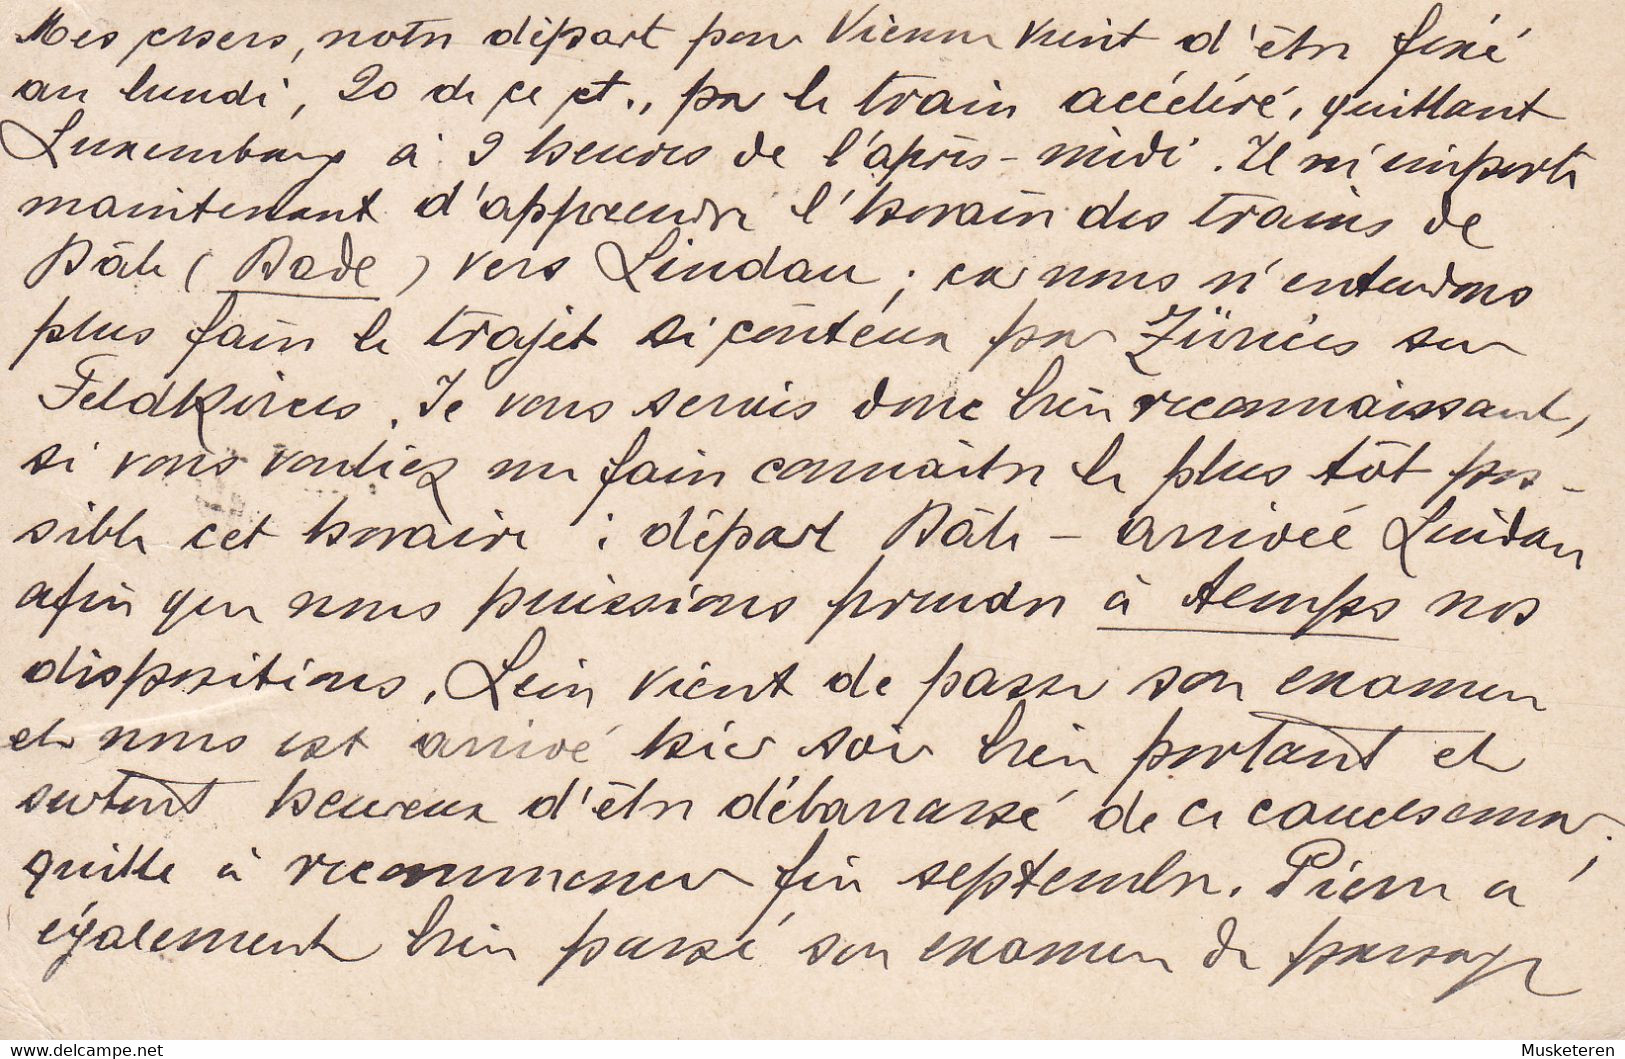 Mes chers, notre départ pour Vienne vient d'être fixé
au lundi, 20 de ce ct., par le train accéléré, quittant
Luxembourg à 9 heures de l'après-midi. Il m'importe
maintenant d'apprendre l'horaire des trains de
Bâle (Bade) vers Lindau; car nous n'entendons
plus faire le trajet si coûteux par Zürich sur
Feldkirch. Je vous serais donc bien reconnaissant,
si vous vouliez me faire connaître le plus tôt pos-
sible cet horaire : départ Bâle - arrivée Lindau
afin que nous puissions prendre à temps nos
dispositions. Léin vient de passer son examen
et nous est arrivé hier soir bien portant et
surtout heureux d'être débarrassé de ce cauchemar,
quitte à recommencer fin septembre. Pierre a
également bien passé son examen de passage
delcampe.net
Musketeren